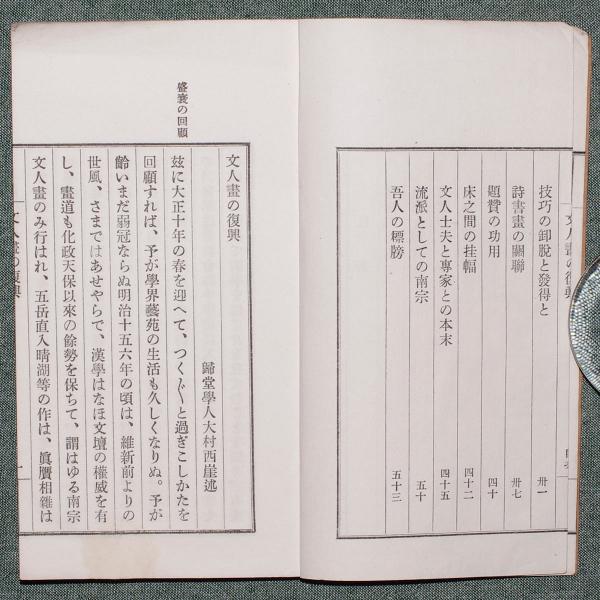 技巧の卸脱と發得と 卅一
詩書畫の關聯 卅七
題贊の功用 四十
床之間の挂幅 四十二
文人士夫と專家との本末 四十五
流派としての南宗 五十
吾人の標牓 五十三
文人畫の復興
盛衰の回顧
文人畫の復興
歸堂學人大村西崖述
玆に大正十年の春を迎へて、つく〴〵と過ぎこしかたを
回顧すれば、予が學界藝苑の生活も久しくなりぬ。予が
齡いまだ弱冠ならぬ明治十五六年の頃は、維新前よりの
世風、さまではあせやらで、漢學はなほ文壇の權威を有
し、畫道も化政天保以來の餘勢を保ちて、謂はゆる南宗
文人畫のみ行はれ、五岳直入晴湖等の作は、眞贋相雜は
文人畫の復興
一